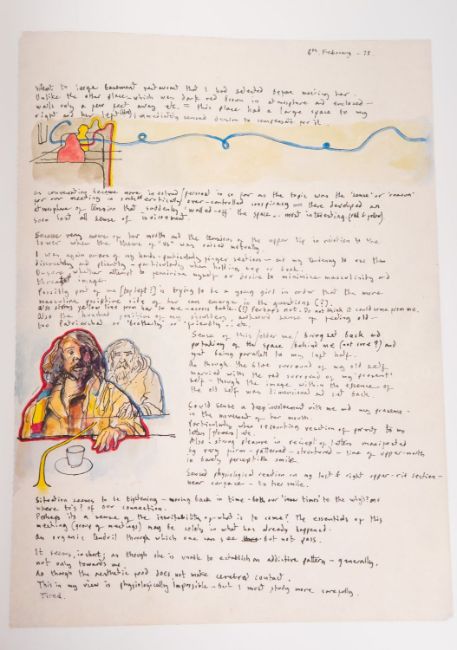 8th February - 75
Went to large basement restaurant that I had selected before meeting her.
Unlike the other place - which was dark red brown in atmosphere and enclosed -
walls only a few feet away etc. = this place had a large space to my
right and her left immediately sensed desire to compensate for it.
as conversation became more involved / personal in so far as the topic was the 'sense' or 'reason'
for our meeting in such erotically over-controlled conspiracy we have developed an
atmosphere of tension that 'suddenly' walled-off the space - most interesting
soon lost all sense of environment.
Become very aware of her mouth and the tension of the upper lip in relation to the
lower when the theme of "us" was raised mutually.
I was again aware of my hands - particularly finger sections - at my tendency to use them
discursively and fluently - particularly when holding cup or book.
Query whether attempt to feminise myself or desire to minimise masculinity and
threat image.
Possibly part of me is trying to be a young girl in order that the more
masculine positive side of her can emerge in the questions (?).
Also strong yellow line from her to me - across table (?) Perhaps not. Do not think it could come from me.
Also the hunched position of my shoulders and awkward sense of feeling old -
too patriarchal or 'brotherly' or 'priestly': etc.
Sense of this / older me / being set back and
partaking of the space / behind me (not core?) and
yet being parallel to my left half.
As though the blue surround of my old self
married with the red surround of my present
self - though the image within the essence of
the old self was dimensional and set back.
Could sense a deep involvement with me and my presence -
in the movement of her mouth
particularly when recounting reaction of parents to my
letters / phone / etc.
Also: strong pleasure in receipt of letter manifested
by very firm - patterned - structured - line of upper-mouth
in barely perceptible smile.
Sensed physiological reaction in my left & right upper-rib section -
near ribcage - to her smile.
Situation seems to be tightening - moving back in time - both our 'inner times' to the why? and
where to? of our connection.
Perhaps its a sense of the inevitability of what is to come? The essentials of this
meeting (group of meetings) may be solely in what has already happened.
An organic tendril through which one can see but not pass.
It seems, in short; as though she is unable to establish an addictive pattern - generally.
not only towards me.
As though the aesthetic food does not make cerebral contact.
This in my view is physiologically impossible - but I must study more carefully.
Tired.